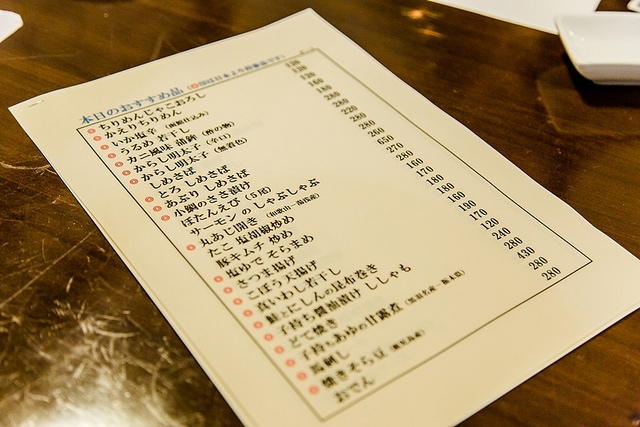 本日のおすすめ品
ちりめんじゃこおろし
かえりちりめん
いか塩辛
うるめ若干し
カニ風味 蒲鉾
からし明太子 (辛口)
からし明太子 (無着色)
しめさば
とろ しめさば
あぶり しめさば
小鯛のささ漬け
ぼたんえび (5尾)
サーモンの しゃぶしゃぶ
丸あじ開き
たこ 塩胡椒炒め
豚キムチ 炒め
塩ゆで そらまめ
さつま揚げ
ごぼう天揚げ
真いわし若干し
鮭とにしんの昆布巻き
子持ち醤油漬け ししゃも
どて焼き
子持ちあゆの甘露煮
馬刺し
焼きそら豆
おでん
130
120
160
180
280
220
280
260
650
270
280
160
170
180
180
160
150
170
120
240
280
430
280
280